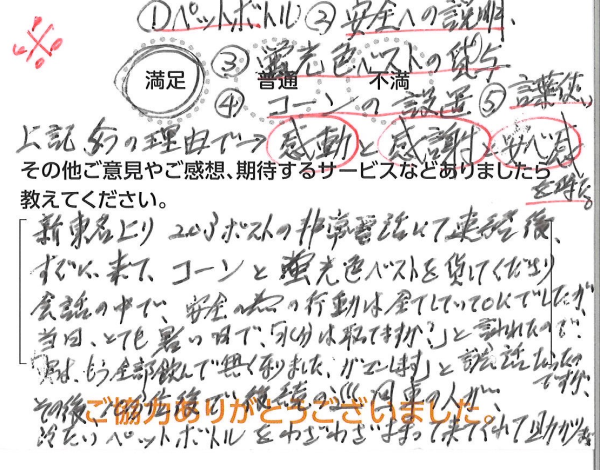 ①ペットボトル ②安全への説明、
満足 普通 不満
③蛍光色ベストの貸与
④コーンの設置 ⑤言葉使い
上記5つの理由で→感動と感謝と安心感
その他ご意見やご感想、期待するサービスなどありましたら
教えてください。
新東名上り 203ポストの非常電話にて連絡後、
すぐに来て、コーンと蛍光色ベストを貸してくださり
会話の中で、安全の為の行動は全てしていてOKでしたが、
当日、とても暑い日で、「水分は取れてますか?」と言われたので、
「実は、もう全部飲んで無くなりました、がマンします」と
ですが、
その後、後続の巡回車の人が、
冷たいペットボトルをわざわざ持って来てくれて助かり
ご協力ありがとうございました。